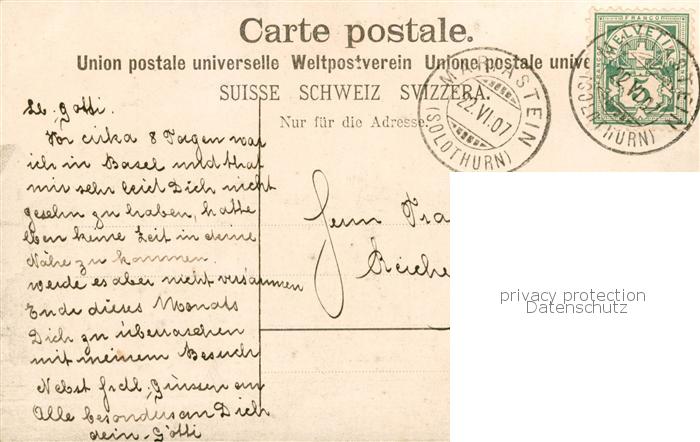 Carte postale.
Union postale universelle Weltpostverein Unione postale unive
SUISSE SCHWEIZ SVIZZERA.
Nur für die Adresse
MARIASTEIN
22.VI.07
(SOLOTHURN)
FRANCO
HELVETIA
5
MARIASTEIN
22.VI.07
(SOLOTHURN)
Lb. Götti.
Vor cirka 8 Tagen war
ich in Basel und that
mir sehr leid Dich nicht
gesehn zu haben, hatte
eben keine Zeit in deine
Nähe zu kommen.
werde es aber nicht versäumen
Ende dieses Monats
Dich zu überraschen
mit meinem Besuch
Nebst frdl. Grüssen an
Alle besonders an Dich
dein Götti
Herrn Fra
Reiche
privacy protection
Datenschutz